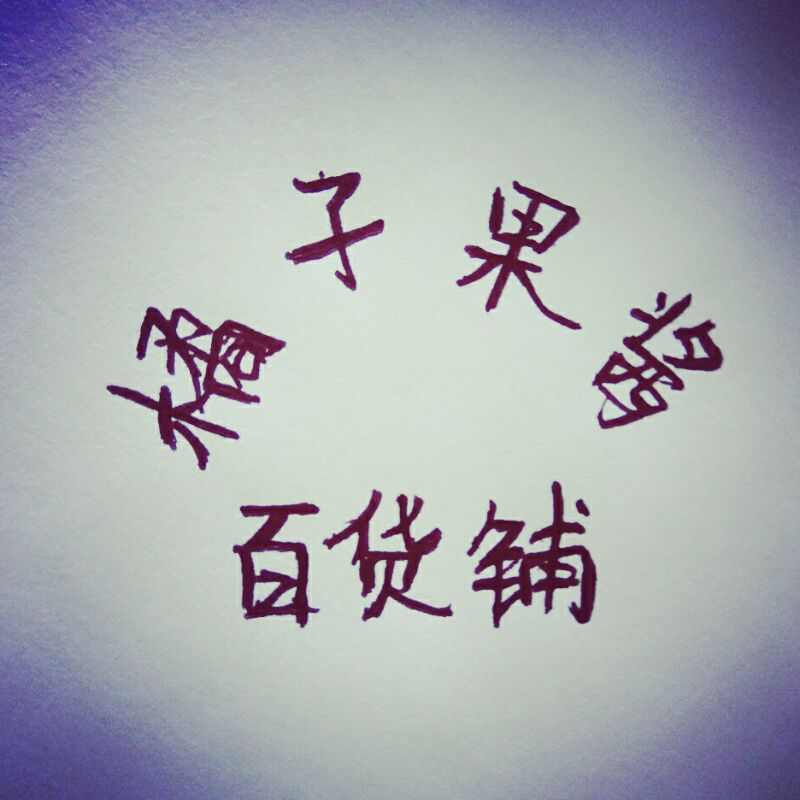 橘子果酱
百货铺